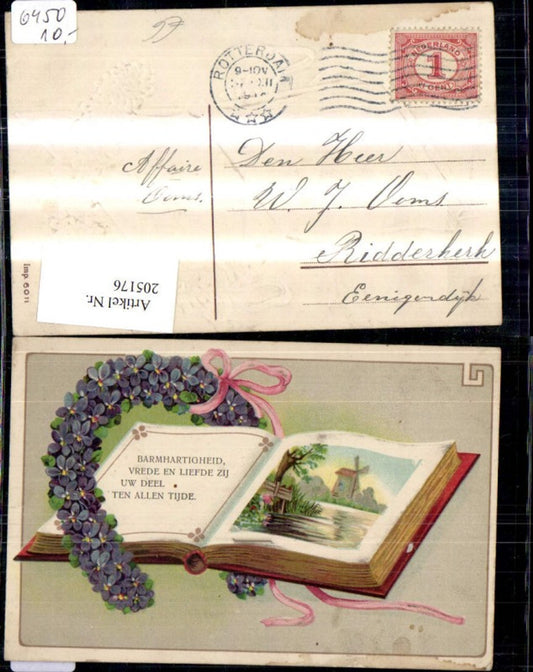 6450
10,-
ROTTERDAM
9-10V
NEDERLAND
1
CENT
Affaire
Ooms.
Den Heer
W. J. Ooms
Ridderkerk
Eenigendijk
Imp. 6011
Artikel Nr.
205176
BARMHARTIGHEID,
VREDE EN LIEFDE ZIJ
UW DEEL
TEN ALLEN TIJDE.